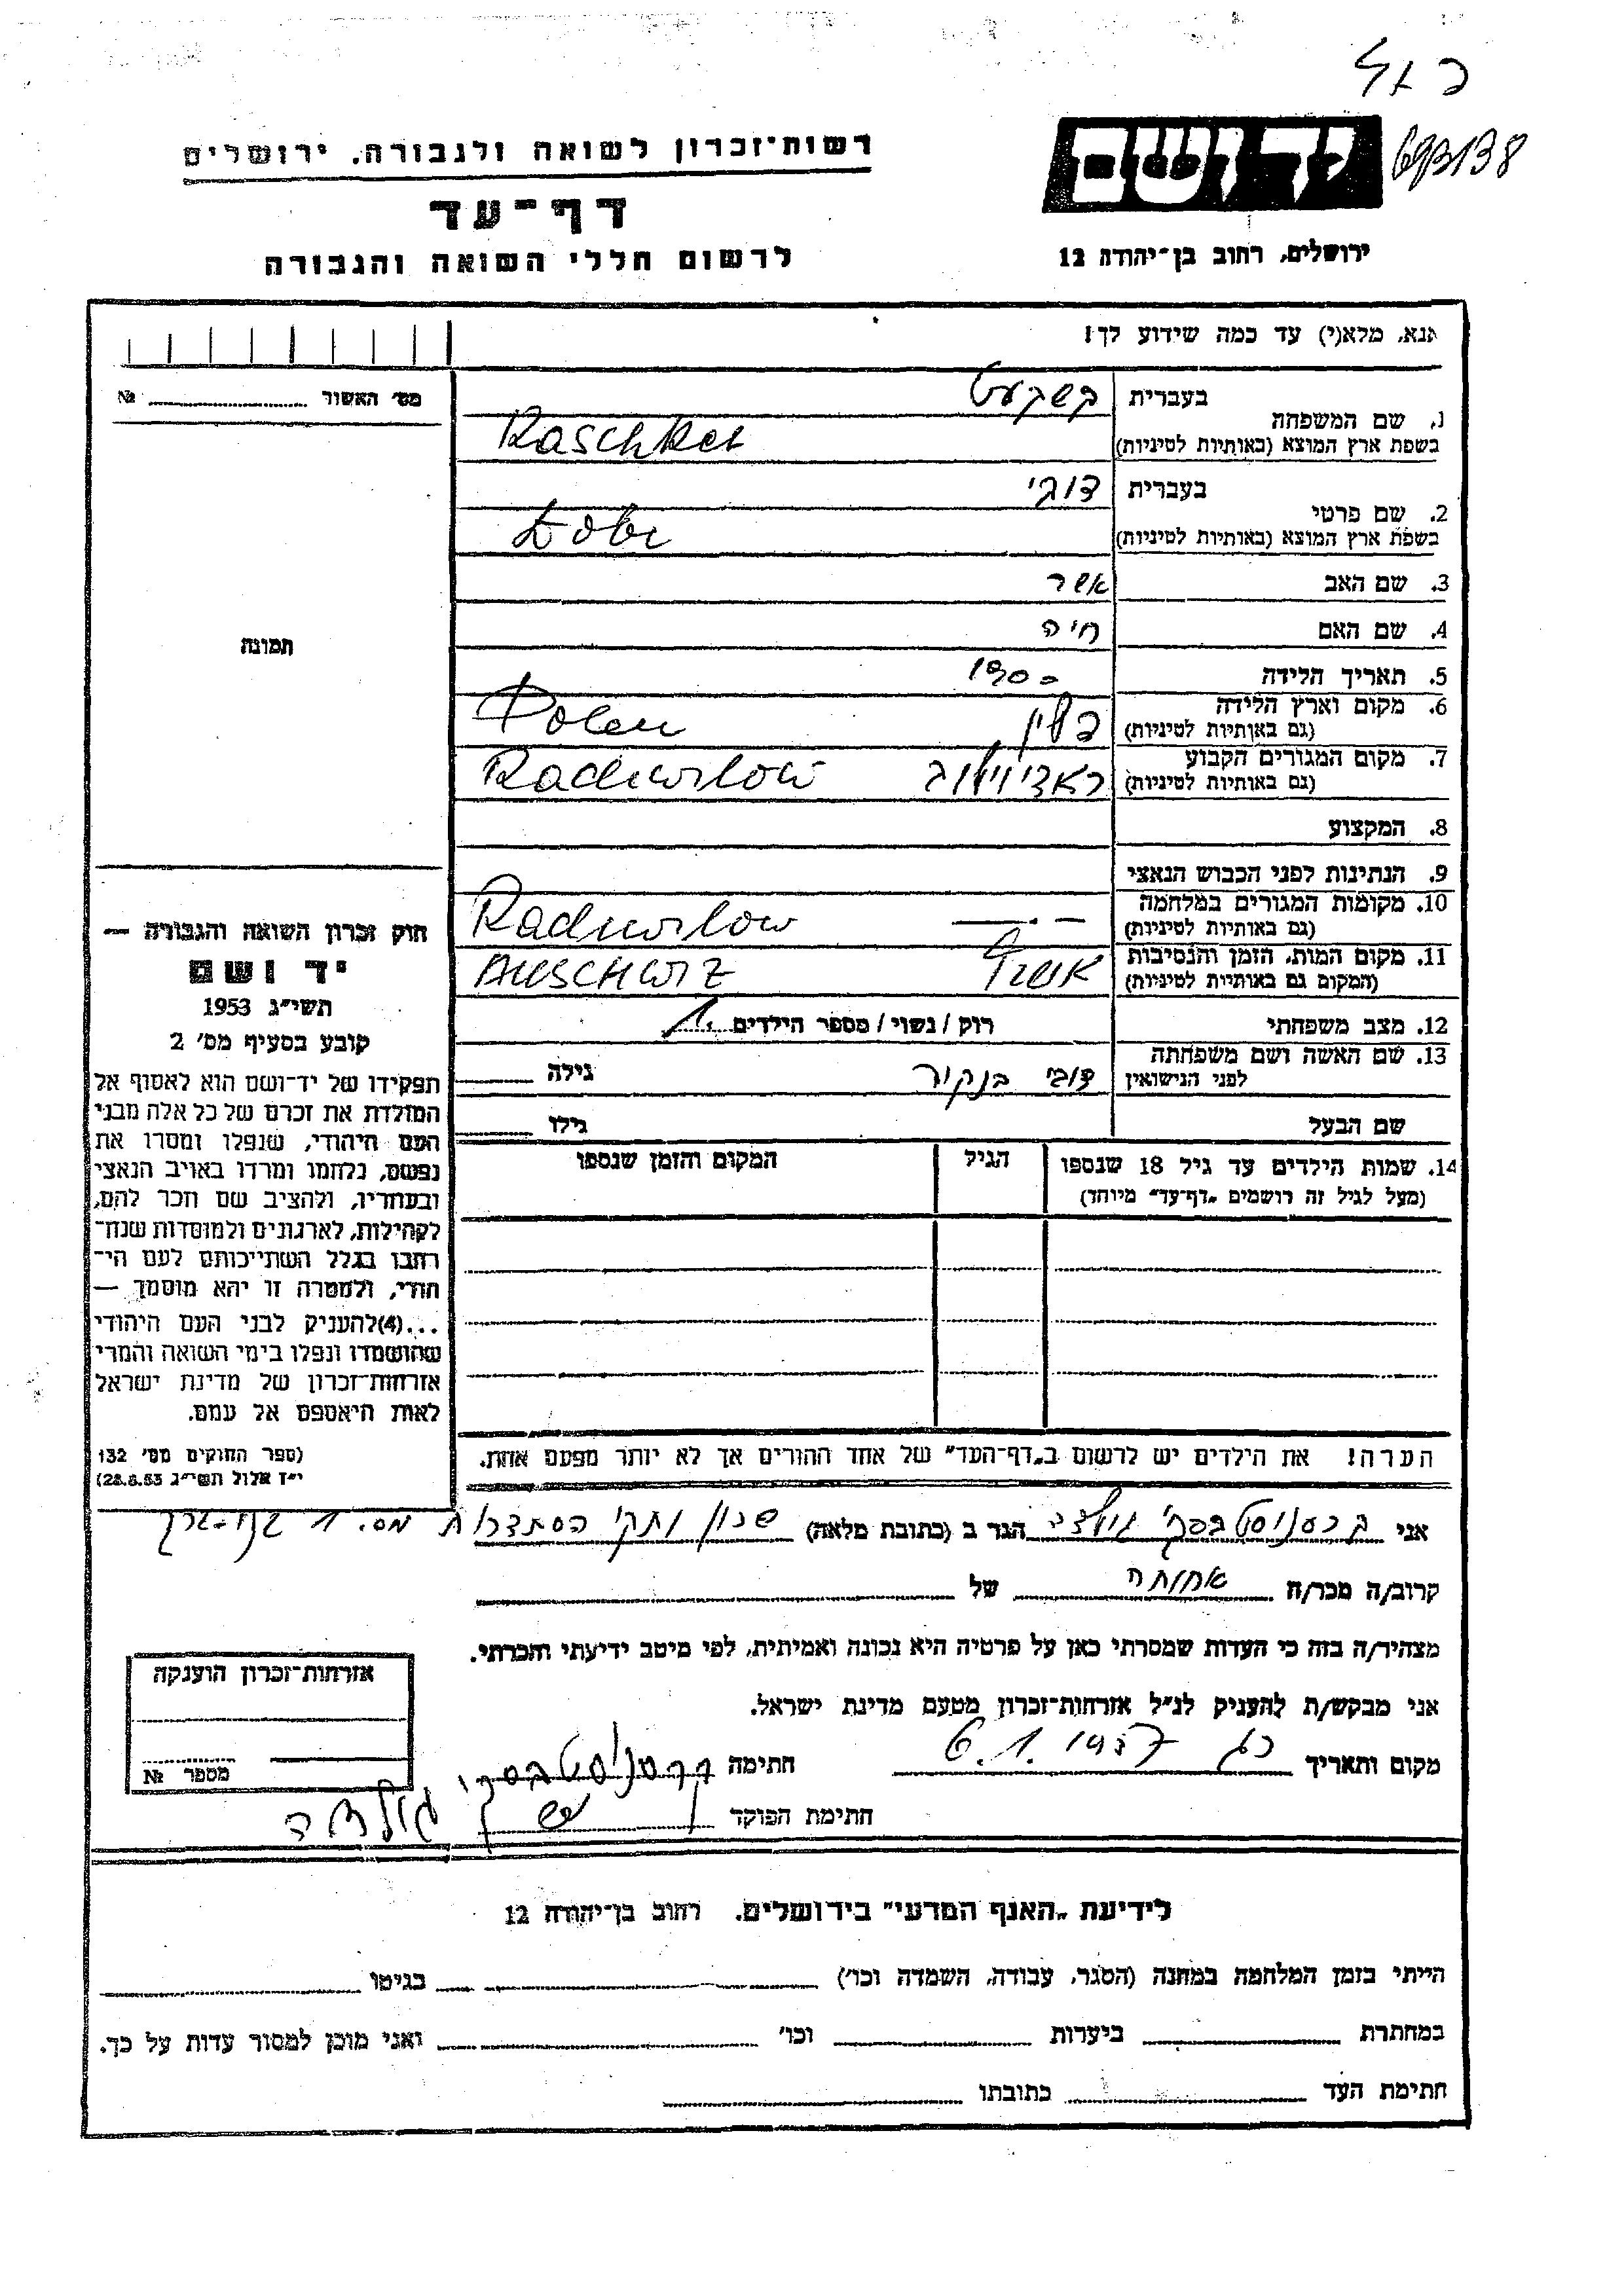 רשות־זכרון לשואה ולגבורה, ירושלים
דף־עד
לרשום חללי השואה והגבורה
יד ושם
693138
ירושלים, רחוב בן־יהודה 12
אנא, מלא(י) עד כמה שידוע לך!
1. שם המשפחה בעברית
בשפת ארץ המוצא (באותיות לטיניות) Raschkes
2. שם פרטי בעברית דובי
בשפת ארץ המוצא (באותיות לטיניות) Dobe
3. שם האב אשר
4. שם האם חיה
5. תאריך הלידה 1900
6. מקום וארץ הלידה פולין Polen
(גם באותיות לטיניות)
7. מקום המגורים הקבוע ראדזיווילוב Radziwilow
(גם באותיות לטיניות)
8. המקצוע
9. הנתינות לפני הכבוש הנאצי
10. מקומות המגורים במלחמה — . — Radziwilow
(גם באותיות לטיניות)
11. מקום המות, הזמן והנסיבות AUSCHWIZ
(המקום גם באותיות לטיניות)
12. מצב משפחתי רוק / נשוי / מספר הילדים 1
13. שם האשה ושם משפחתה דובי גילה
לפני הנישואין
שם הבעל גילו
14. שמות הילדים עד גיל 18 שנספו הגיל המקום והזמן שנספו
(מעל לגיל זה רושמים „דף־עד" מיוחד)
הערה! את הילדים יש לרשום ב„דף־העד" של אחד ההורים אך לא יותר מפעם אחת.
מס' האשור №
תמונה
חוק זכרון השואה והגבורה —
יד ושם
תשי"ג 1953
קובע בסעיף מס' 2
תפקידו של יד־ושם הוא לאסוף אל
המולדת את זכרם של כל אלה מבני
העם היהודי, שנפלו ומסרו את
נפשם, נלחמו ומרדו באויב הנאצי
ובעוזריו, ולהציב שם וזכר להם,
לקהילות, לארגונים ולמוסדות שנח־
רבו בגלל השתייכותם לעם הי־
הודי, ולמטרה זו יהא מוסמך —
...(4)להעניק לבני העם היהודי
שהושמדו ונפלו בימי השואה והמרי
אזרחות־זכרון של מדינת ישראל
לאות היאספם אל עמם.
(ספר החוקים מס' 132
י"ז אלול תשי"ג 28.8.53)
אני הגר ב (כתובת מלאה) שכון ותקי הסתדרות מס. 1
קרוב/ה מכר/ה אחותה של
מצהיר/ה בזה כי העדות שמסרתי כאן על פרטיה היא נכונה ואמיתית, לפי מיטב ידיעתי והכרתי.
אני מבקש/ת להעניק לנ"ל אזרחות־זכרון מטעם מדינת ישראל.
מקום ותאריך 6.1.1957 חתימה
חתימת הפוקד
אזרחות־זכרון הוענקה
מספר №
לידיעת „האגף המדעי" בירושלים, רחוב בן־יהודה 12
הייתי בזמן המלחמה במחנה (הסגר, עבודה, השמדה וכו') בגיטו
במחתרת ביערות וכו' ואני מוכן למסור עדות על כך.
חתימת העד כתובתו